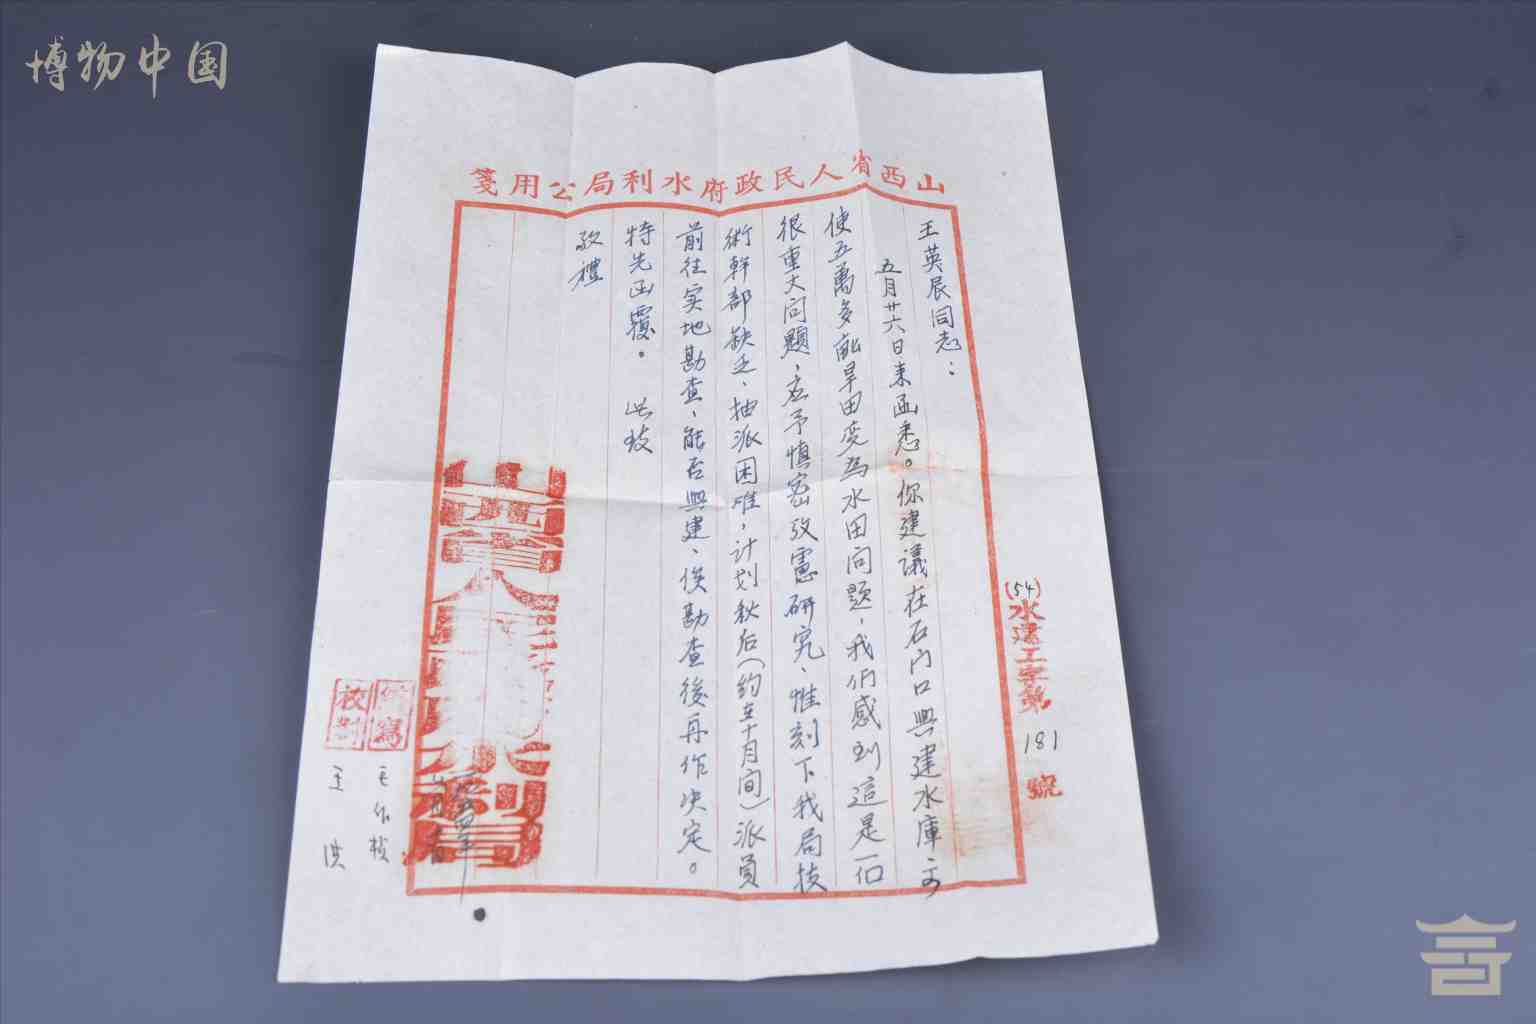 博物中国
山西省人民政府水利局公用箋
(54)水建工字第181號
王英辰同志：
五月廿六日来函悉。你建議在石门口興建水庫、可
使五萬多畝旱田变為水田问题，我们感到這是一个
很重大问题，应予慎密攷慮研究、惟刻下我局技
術幹部缺乏、抽派困难，计划秋后(约在十月间)派員
前往实地勘查，能否興建、俟勘查後再作决定。
特先函覆。 此致
敬禮
山西省人民政府水利局
繕寫 王作楨
校对 王洪